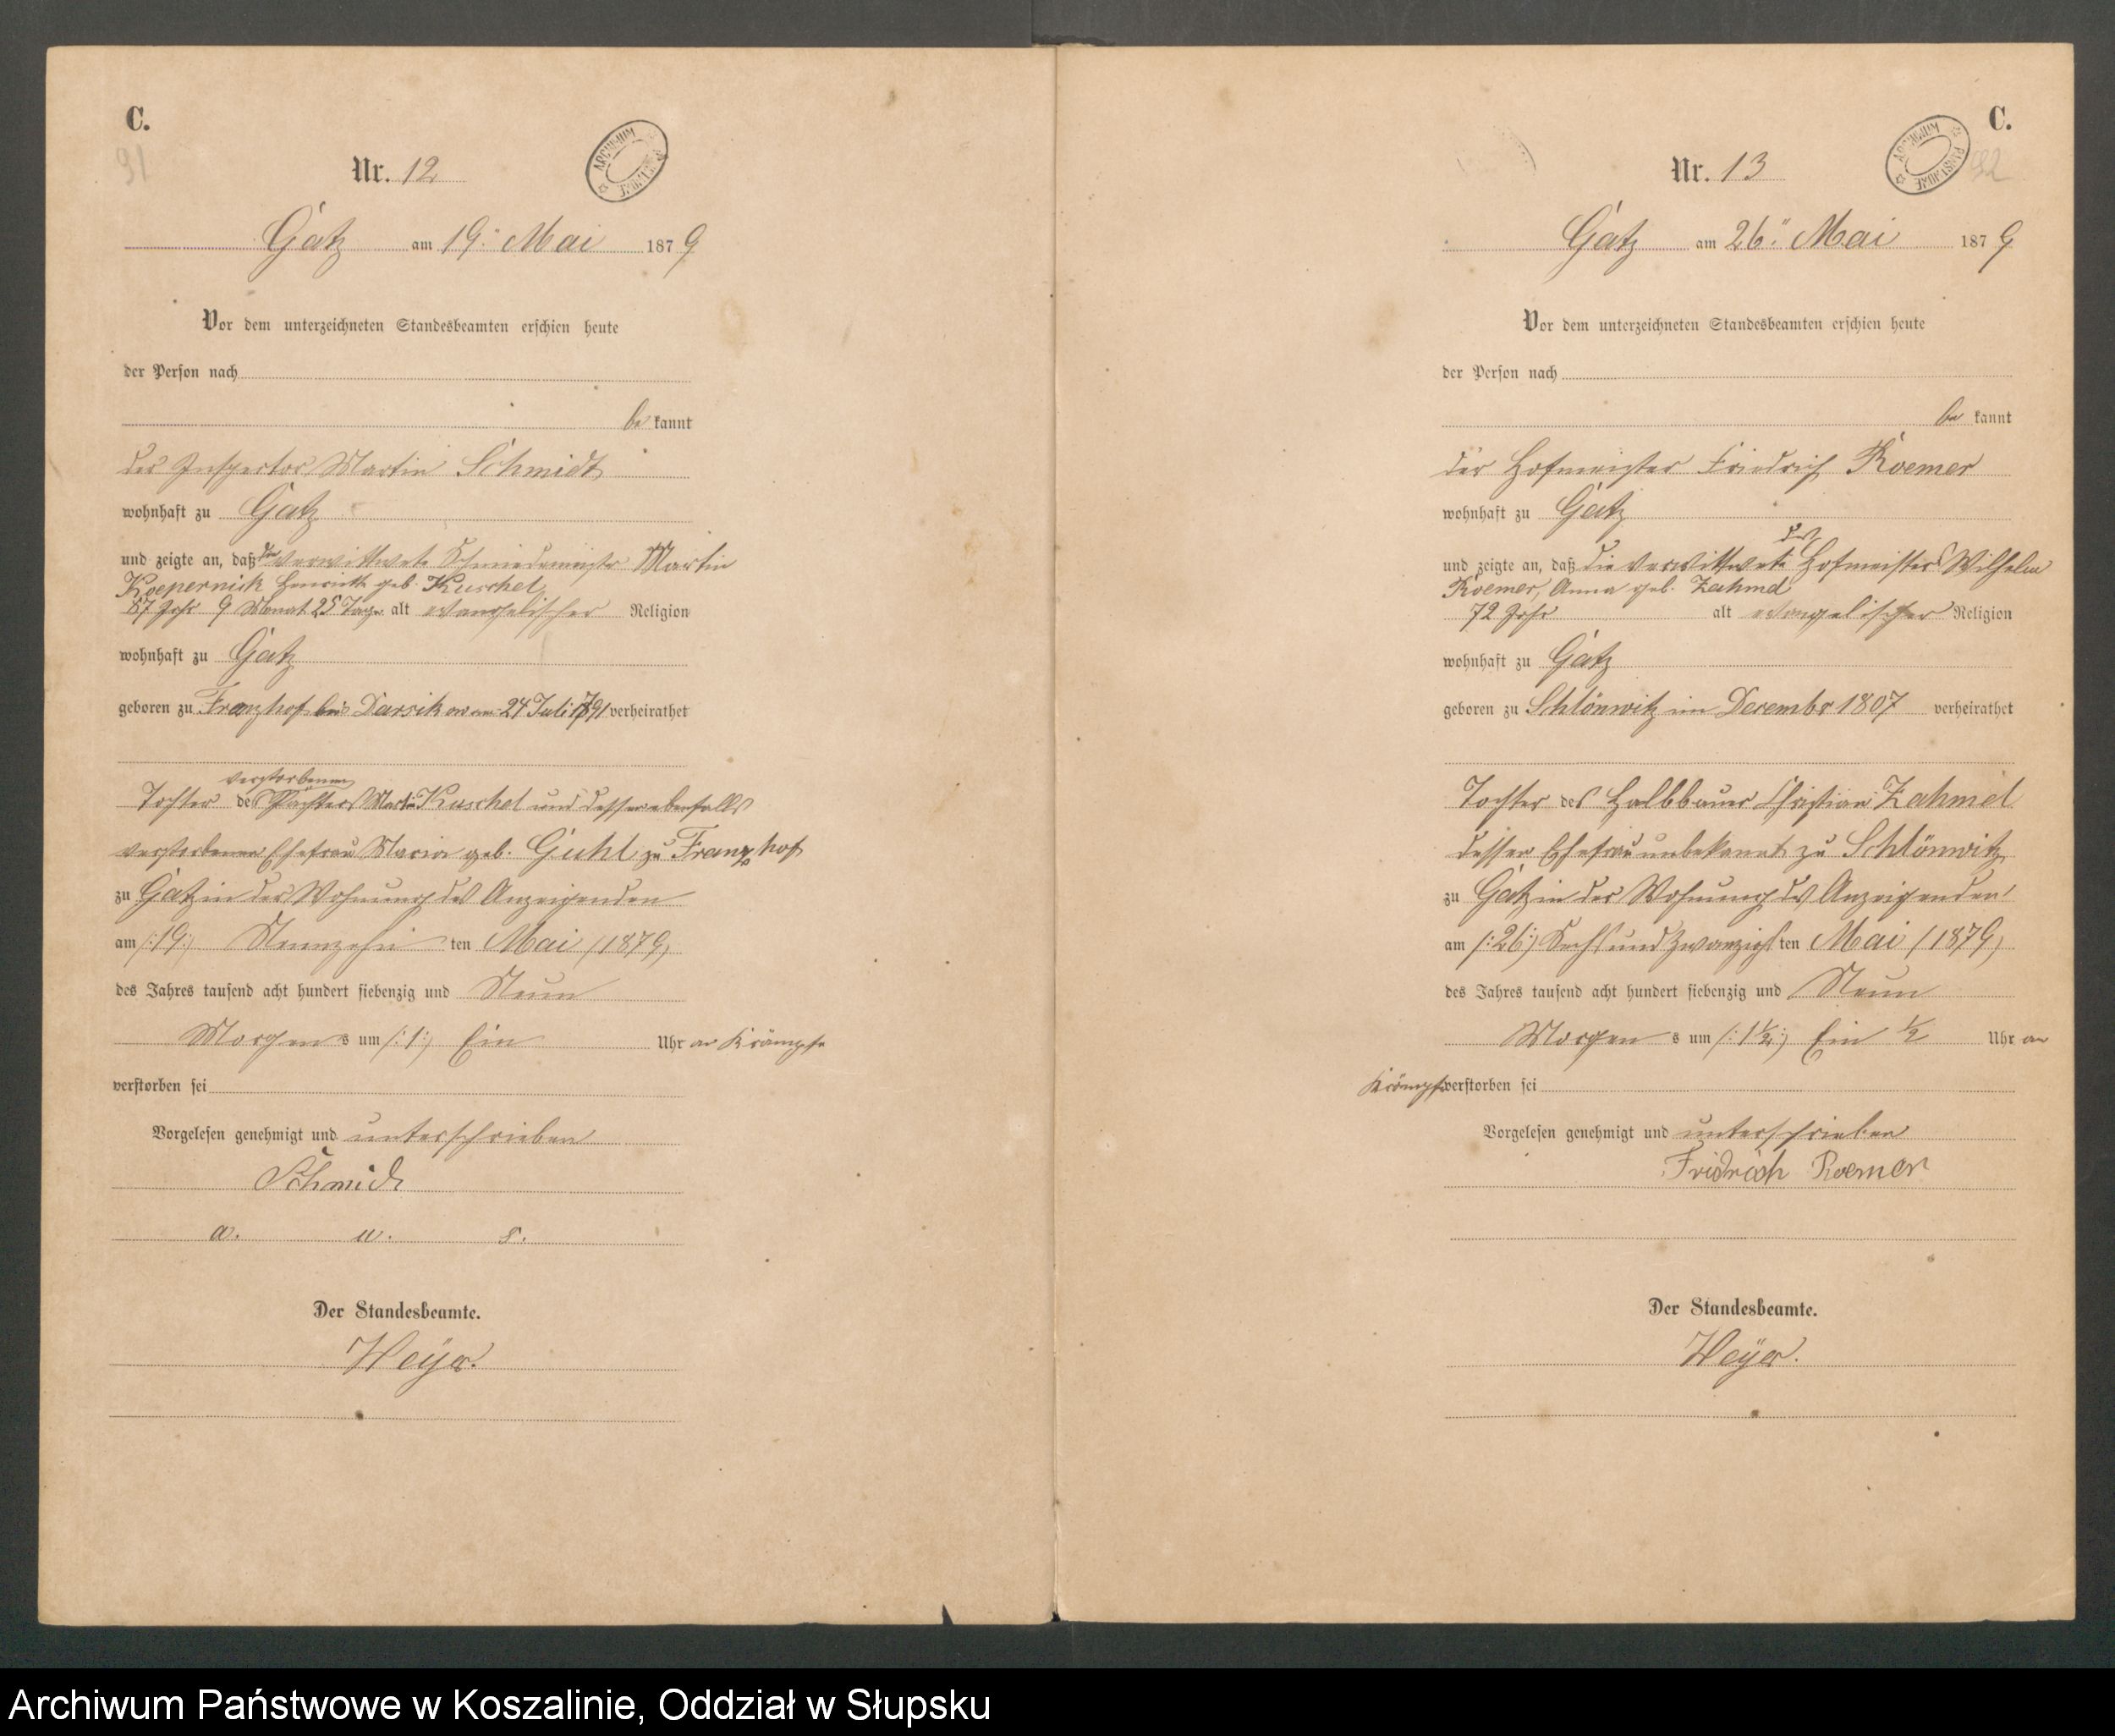 C.
91
Nr. 12
ARCHIWUM PAŃSTWOWE
Gatz am 19.ⁿ Mai 1879
Vor dem unterzeichneten Standesbeamten erschien heute
der Person nach
bekannt
der Inspector Martin Schmidt
wohnhaft zu Gatz
und zeigte an, daß die verwittwete Schmiedemeister Martin
Koepernick Henriette geb. Kuschel
87 Jahr 9 Monat 25 Tage alt evangelischer Religion
wohnhaft zu Gatz
geboren zu Franzhof bei Darsikow am 24 Juli 1791 verheirathet
verstorbenen
Tochter des Pächters Martin Kuschel und dessen ebenfalls
verstorbenen Ehefrau Maria geb. Guhl zu Franzhof
zu Gatz in der Wohnung des Anzeigenden
am /:19:/ Neunzehn ten Mai /1879/
des Jahres tausend acht hundert siebenzig und Neun
Morgens um /:1:/ Ein Uhr an Krämpfe
verstorben sei
Vorgelesen genehmigt und unterschrieben
Schmidt
a. u. s.
Der Standesbeamte.
Heyer.
C.
92
Nr. 13
ARCHIWUM PAŃSTWOWE
Gatz am 26.ⁿ Mai 1879
Vor dem unterzeichneten Standesbeamten erschien heute
der Person nach
bekannt
der Hofmeister Friedrich Roemer
wohnhaft zu Gatz
des
und zeigte an, daß die verwittwete Hofmeisters Wilhelm
Roemer, Anna geb. Zahmel
72 Jahr alt evangelischer Religion
wohnhaft zu Gatz
geboren zu Schlönwitz im Decembr 1807 verheirathet
Tochter des Halbbauer Christian Zahmel
dessen Ehefrau unbekannt zu Schlönwitz
zu Gatz in der Wohnung des Anzeigenden
am /:26:/ Sechs und Zwanzigsten Mai /1879/
des Jahres tausend acht hundert siebenzig und Neun
Morgens um /:1½:/ Ein ½ Uhr an
Krämpfe verstorben sei
Vorgelesen genehmigt und unterschrieben
Fridrich Roemer
Der Standesbeamte.
Heyer.
Archiwum Państwowe w Koszalinie, Oddział w Słupsku